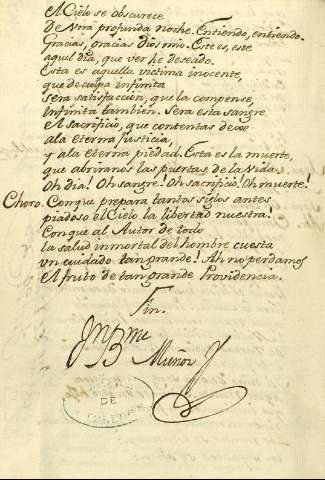 el Cielo se obscurece
De vna profunda noche. Entiendo, entiendo.
Gracias, gracias Dios mio. Este es, este
aquel dia, que ver he deseado.
Esta es aquella victima inocente,
que de culpa infinita
sera satisfaccion, que la compense,
infinita tambien. Sera esta sangre
el sacrificio, que contentas dexe
a la eterna justicia,
y a la eterna piedad. Esta es la muerte,
que abriranos las puertas de la vida.
Oh dia! Oh sangre! Oh sacrificio! Oh muerte!
Choro. Conque prepara tantos siglos antes
piadoso el Cielo la libertad nuestra!
Conque al Autor de todo
la salud inmortal del hombre cuesta
vn cuidado tan grande! Ah no perdamos
el fruto de tan grande Providencia.
Fin.
Muñoz
DE